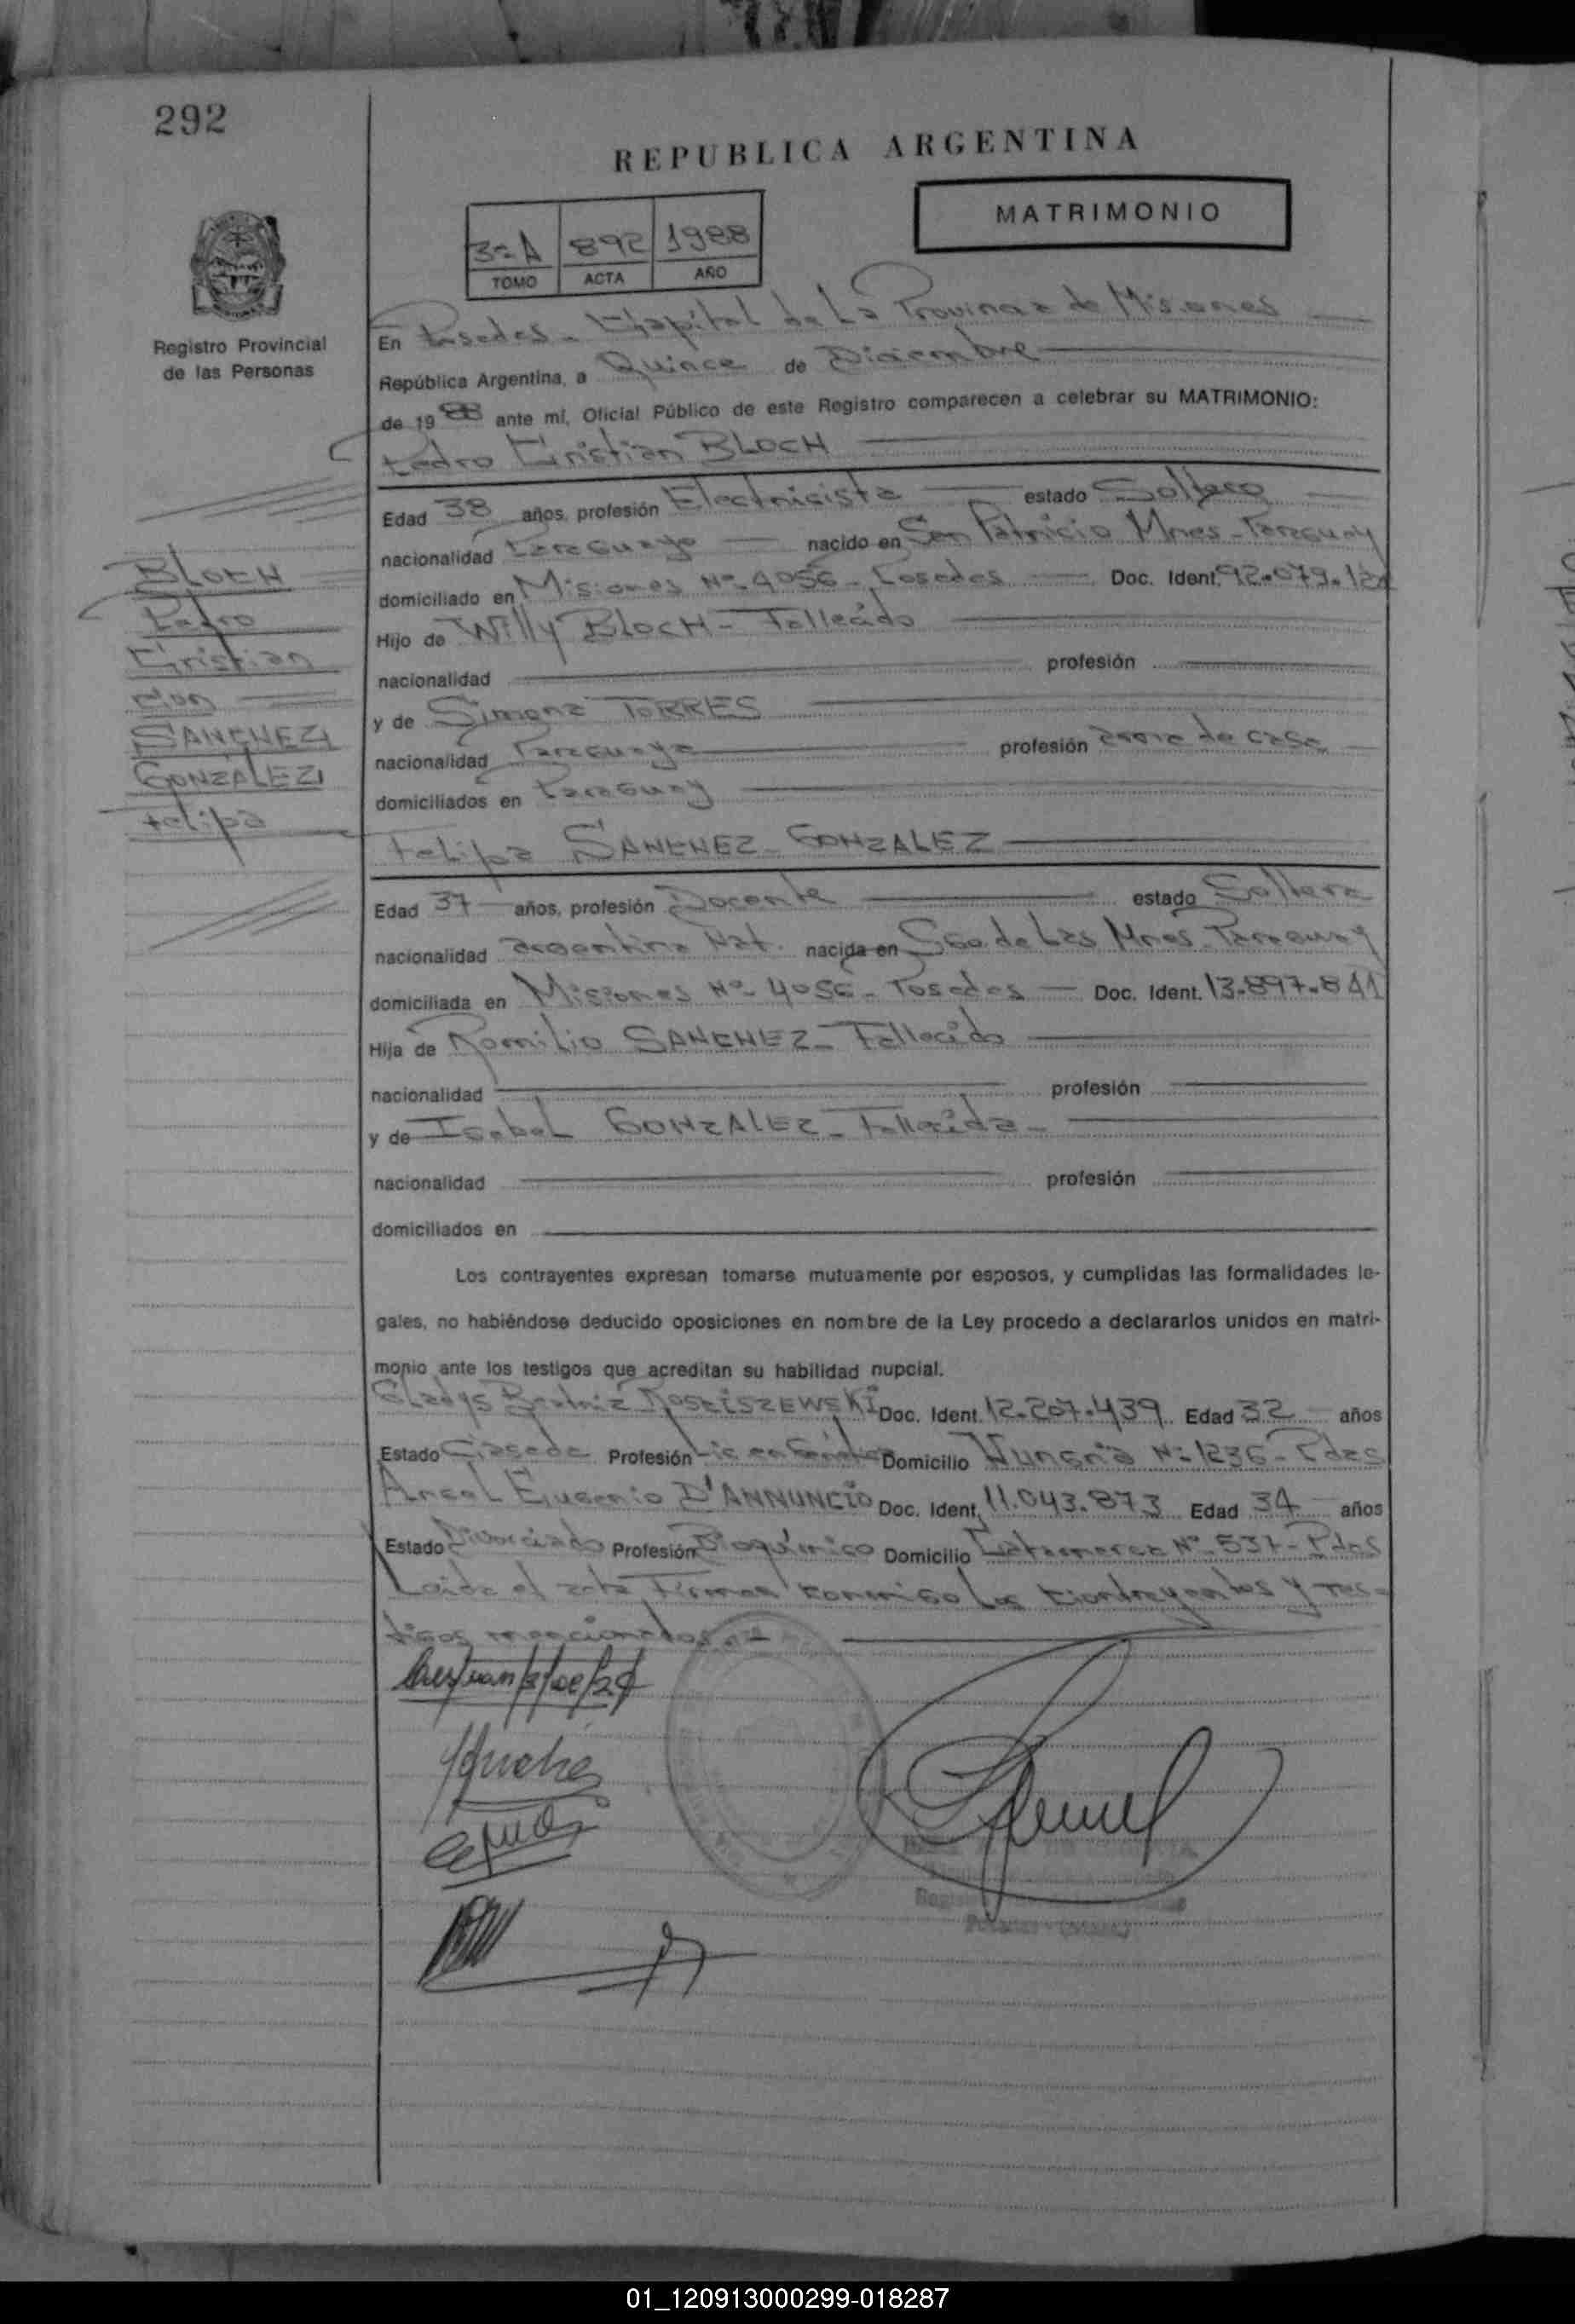 292
REPUBLICA ARGENTINA
MATRIMONIO
3º A 892 1988
TOMO ACTA AÑO
Registro Provincial
de las Personas
En Posadas - Capital de La Provincia de Misiones
República Argentina, a Quince de Diciembre
de 1988 ante mí, Oficial Público de este Registro comparecen a celebrar su MATRIMONIO:
Pedro Cristian BLOCH
Edad 38 años, profesión Electricista estado Soltero
nacionalidad Paraguayo nacido en San Patricio Mnes - Paraguay
domiciliado en Misiones Nº 4056 - Posadas Doc. Ident. 92.079.12
Hijo de Willy BLOCH - Fallecido
nacionalidad profesión
y de Simona TORRES
nacionalidad Paraguaya profesión ama de casa
domiciliados en Paraguay
BLOCH
Pedro
Cristian
con
SANCHEZ
GONZALEZ
Felipa
Felipa SANCHEZ - GONZALEZ
Edad 37 años, profesión Docente estado Soltera
nacionalidad argentina Nat. nacida en Sgo. de Las Mnes - Paraguay
domiciliada en Misiones Nº 4056 - Posadas Doc. Ident. 13.897.841
Hija de Romilio SANCHEZ - Fallecido
nacionalidad profesión
y de Isabel GONZALEZ - Fallecida -
nacionalidad profesión
domiciliados en
Los contrayentes expresan tomarse mutuamente por esposos, y cumplidas las formalidades le-
gales, no habiéndose deducido oposiciones en nombre de la Ley procedo a declararlos unidos en matri-
monio ante los testigos que acreditan su habilidad nupcial.
Gladys Beatriz ROSCISZEWSKI Doc. Ident. 12.207.439 Edad 32 años
Estado Casada Profesión Lic en Domicilio Hungria Nº 1236 - Pdas
Angel Eugenio D'ANNUNCIO Doc. Ident. 11.043.873 Edad 34 años
Estado Divorciado Profesión Bioquímico Domicilio Catamarca Nº 537 - Pdas
Leida el acta Firman conmigo Los Contrayentes y tes-
tigos mencionados
01_120913000299-018287